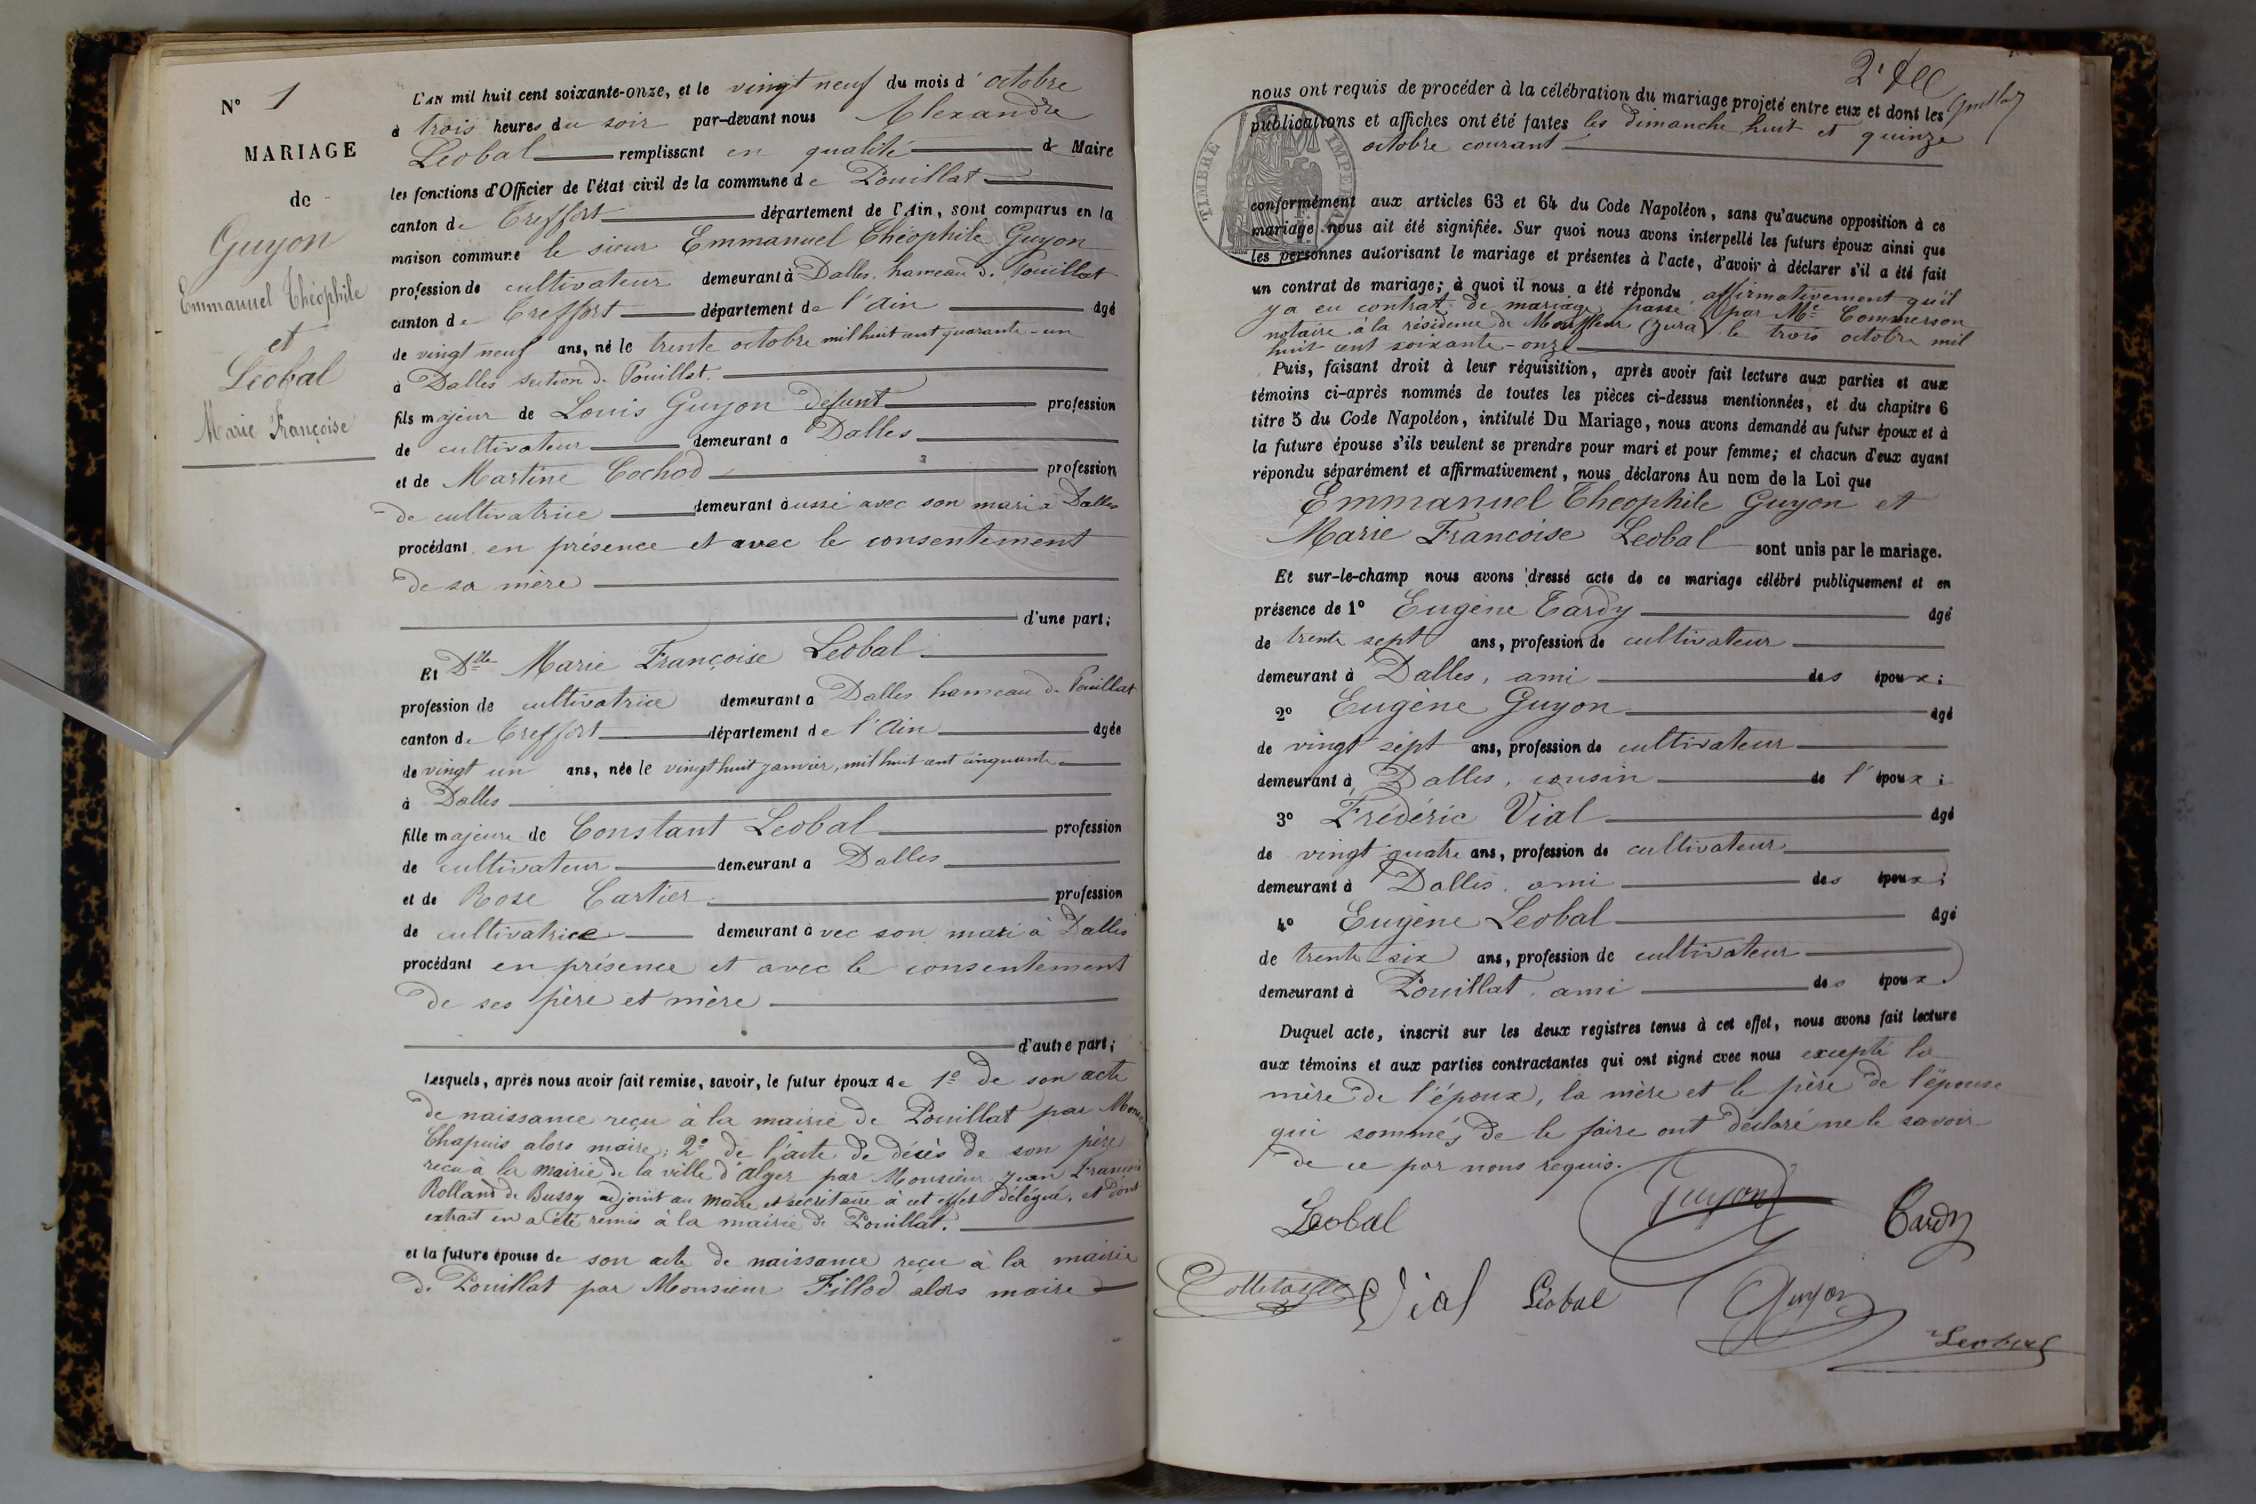 N° 1
MARIAGE
de
Guyon
Emmanuel Théophile
et
Léobal
Marie Françoise
L'AN mil huit cent soixante-onze, et le vingt neuf du mois d'octobre
à trois heures du soir par-devant nous Alexandre
Leobal remplissant en qualité de Maire
les fonctions d'Officier de l'état civil de la commune de Pouillat
canton de Treffort département de l'Ain, sont comparus en la
maison commune le sieur Emmanuel Théophile Guyon
profession de cultivateur demeurant à Dalles, hameau de Pouillat
canton de Treffort département de l'Ain âgé
de vingt neuf ans, né le trente octobre mil huit cent quarante-un
à Dalles section de Pouillat.
fils majeur de Louis Guyon défunt profession
de cultivateur demeurant à Dalles
et de Martine Cochod profession
de cultivatrice demeurant aussi avec son mari à Dalles
procédant en présence et avec le consentement
de sa mère
d'une part;
Et Dlle Marie Françoise Leobal
profession de cultivatrice demeurant à Dalles hameau de Pouillat
canton de Treffort département de l'Ain âgée
de vingt un ans, née le vingt huit janvier, mil huit cent cinquante
à Dalles
fille majeure de Constant Leobal profession
de cultivateur demeurant à Dalles
et de Rose Cartier profession
de cultivatrice demeurant avec son mari à Dalles
procédant en présence et avec le consentement
de ses père et mère
d'autre part;
Lesquels, après nous avoir fait remise, savoir, le futur époux de 1° de son acte
de naissance reçu à la mairie de Pouillat par Monsr
Chapuis alors maire; 2° de l'acte de décès de son père
reçu à la mairie de la ville d'Alger par Monsieur Jean François
Rolland de Bussy adjoint au maire et secrétaire à cet effet délégué, et dont
extrait en a été remis à la mairie de Pouillat.
et la future épouse de son acte de naissance reçu à la mairie
de Pouillat par Monsieur Fillod alors maire
nous ont requis de procéder à la célébration du mariage projeté entre eux et dont les
publications et affiches ont été faites les dimanche huit et quinze
octobre courant
TIMBRE IMPERIAL
conformément aux articles 63 et 64 du Code Napoléon, sans qu'aucune opposition à ce
mariage nous ait été signifiée. Sur quoi nous avons interpellé les futurs époux ainsi que
les personnes autorisant le mariage et présentes à l'acte, d'avoir à déclarer s'il a été fait
un contrat de mariage; à quoi il nous a été répondu affirmativement qu'il
y a eu contrat de mariage passé par Me Commerson
notaire à la résidence de Montfleur (Jura) le trois octobre mil
huit cent soixante-onze
Puis, faisant droit à leur réquisition, après avoir fait lecture aux parties et aux
témoins ci-après nommés de toutes les pièces ci-dessus mentionnées, et du chapitre 6
titre 5 du Code Napoléon, intitulé Du Mariage, nous avons demandé au futur époux et à
la future épouse s'ils veulent se prendre pour mari et pour femme; et chacun d'eux ayant
répondu séparément et affirmativement, nous déclarons Au nom de la Loi que
Emmanuel Theophile Guyon et
Marie Francoise Leobal sont unis par le mariage.
Et sur-le-champ nous avons dressé acte de ce mariage célébré publiquement et en
présence de 1° Eugène Tardy âgé
de trente sept ans, profession de cultivateur
demeurant à Dalles, ami des époux;
2° Eugène Guyon âgé
de vingt sept ans, profession de cultivateur
demeurant à Dalles, cousin de l'époux;
3° Frédéric Vial âgé
de vingt quatre ans, profession de cultivateur
demeurant à Dalles, ami des époux;
4° Eugène Leobal âgé
de trente six ans, profession de cultivateur
demeurant à Pouillat, ami des époux.
Duquel acte, inscrit sur les deux registres tenus à cet effet, nous avons fait lecture
aux témoins et aux parties contractantes qui ont signé avec nous excepté la
mère de l'époux, la mère et le père de l'épouse
qui sommés de le faire ont déclaré ne le savoir
de ce par nous requis.
Leobal Guyon Tardy
Vial Léobal Guyon
Leobal